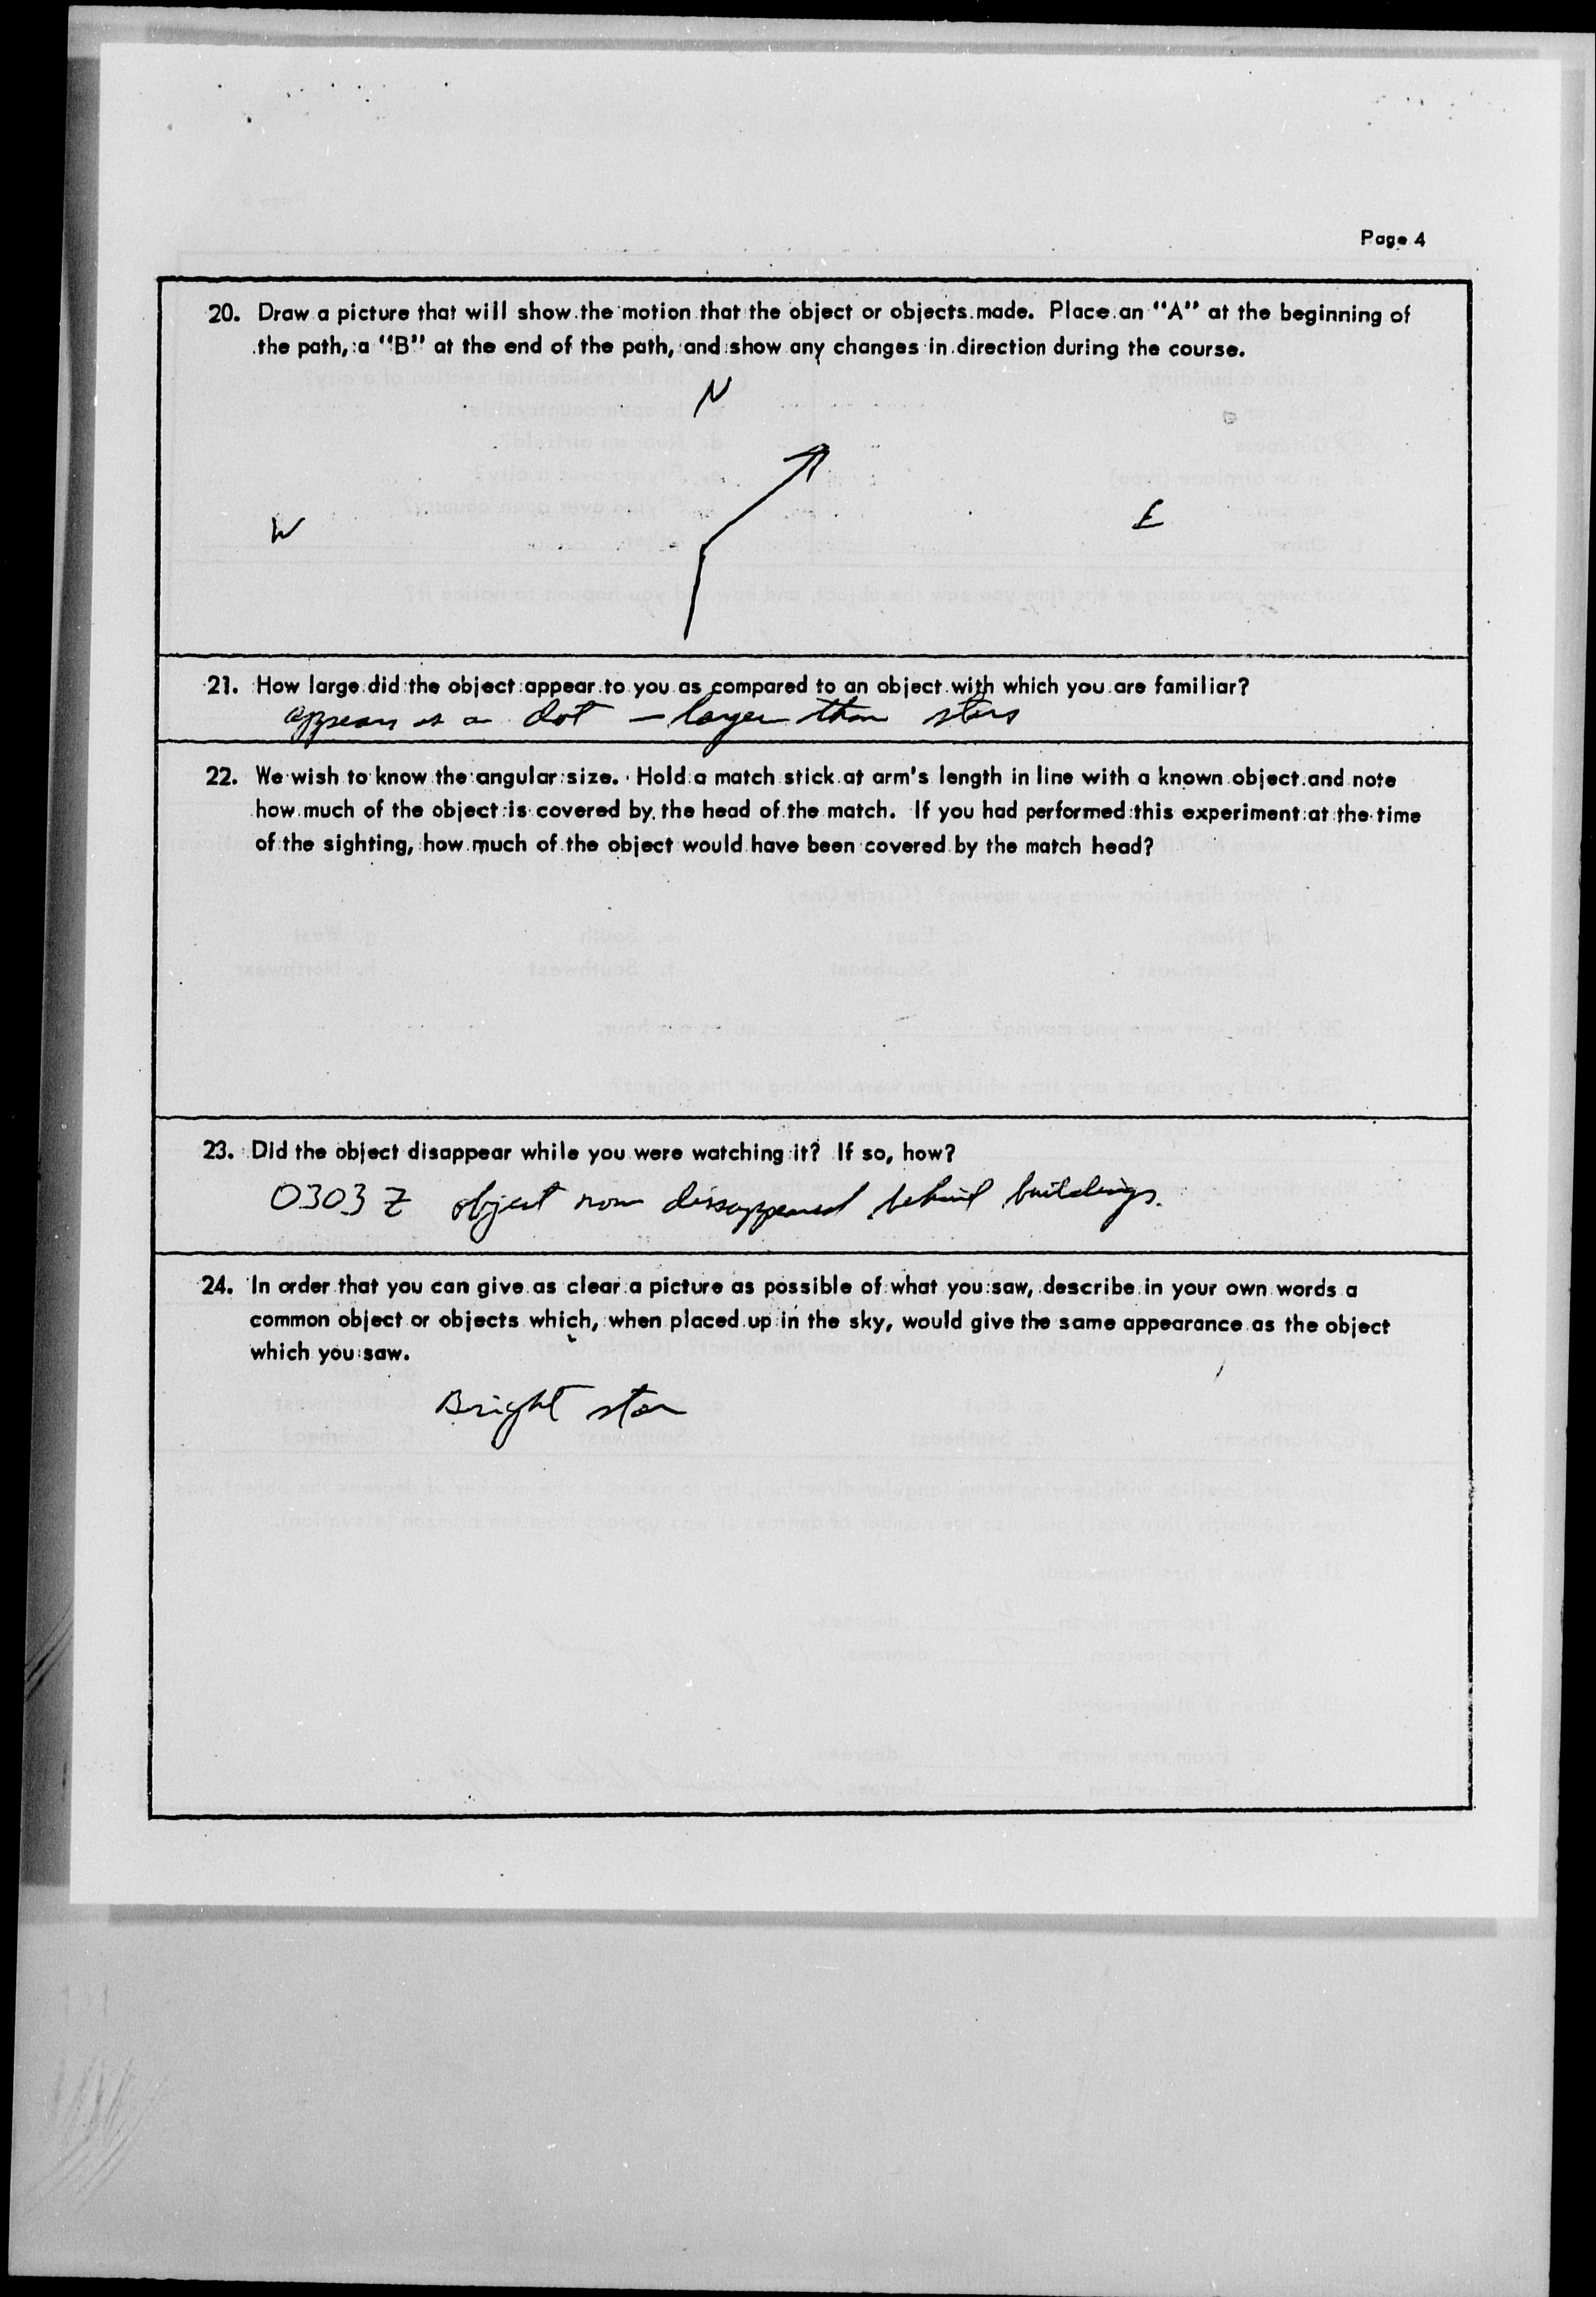 Page 4
20. Draw a picture that will show the motion that the object or objects made. Place an "A" at the beginning of
the path, a "B" at the end of the path, and show any changes in direction during the course.
N
W
E
21. How large did the object appear to you as compared to an object with which you are familiar?
appears as a dot — larger than stars
22. We wish to know the angular size. Hold a match stick at arm's length in line with a known object and note
how much of the object is covered by the head of the match. If you had performed this experiment at the time
of the sighting, how much of the object would have been covered by the match head?
23. Did the object disappear while you were watching it? If so, how?
0303 Z object now dissappeared behind buildings.
24. In order that you can give as clear a picture as possible of what you saw, describe in your own words a
common object or objects which, when placed up in the sky, would give the same appearance as the object
which you saw.
Bright star